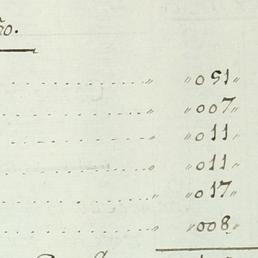 ño.
" "051"
" "007"
" "011"
" "011"
" "017"
" "008"